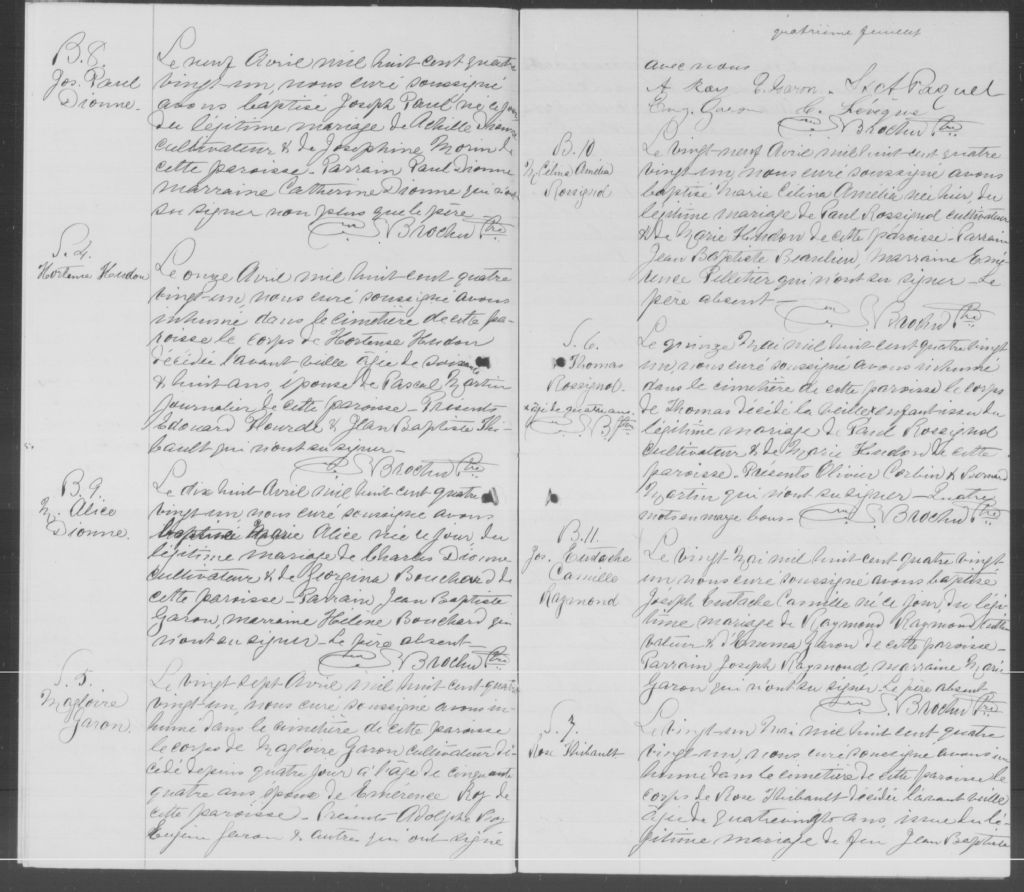 B. 8.
Jos. Paul
Dionne.
Le neuf Avril mil huit cent quatre
vingt-un, nous curé soussigné
avons baptisé Joseph Paul né ce jour
du légitime mariage de Achille Dionne
cultivateur & de Josephine Morin de
cette paroisse – Parrain Paul Dionne
marraine Catherine Dionne qui n'ont
su signer non plus que le père –
Brochu Ptre
S. 4.
Hortense Houdon
Le onze Avril mil huit cent quatre
vingt-un, nous curé soussigné avons
inhumé dans le cimetière de cette pa-
roisse le corps de Hortense Houdon
décédée l'avant veille âgée de soixante
& huit ans, épouse de Pascal Martin
journalier de cette paroisse – Présents
Edouard Plourde & Jean Baptiste Thi-
bault qui n'ont su signer –
Brochu Ptre
B. 9.
M. Alice
Dionne.
Le dix huit Avril mil huit cent quatre
vingt-un nous curé soussigné avons
baptisé Marie Alice née ce jour, du
légitime mariage de Charles Dionne
cultivateur & de Georgina Bouchard de
cette paroisse – Parrain, Jean Baptiste
Garon, marraine Hélène Bouchard qui
n'ont su signer – Le père absent –
Brochu Ptre
S. 5.
Magloire
Garon.
Le vingt sept Avril mil huit cent quatre
vingt-un, nous curé soussigné avons in-
humé dans le cimetière de cette paroisse
le corps de Magloire Garon cultivateur dé-
cédé depuis quatre jour à l'âge de cinquante
quatre ans, époux de Emérence Roy de
cette paroisse – Présents Adolphe Roy
Eugène Garon & autres qui ont signé
quatrième feuillet
avec nous
A. Roy P. Garon – Paquet
Eug. Garon C. Lévêque
Brochu Ptre
B. 10
M. Celina Amélia
Rossignol
Le vingt-neuf Avril mil huit cent quatre
vingt-un, nous curé soussigné avons
baptisé Marie Celina Amelia née hier, du
légitime mariage de Paul Rossignol cultivateur
& de Marie Houdon de cette paroisse – Parrain
Jean Baptiste Beaulieu, marraine Emé-
rence Pelletier qui n'ont su signer – Le
père absent –
Brochu Ptre
S. 6.
Thomas
Rossignol.
x âgé de quatre ans.
B Ptre
Le quinze Mai mil huit cent quatre vingt
un nous curé soussigné avons inhumé
dans le cimetière de cette paroisse le corps
de Thomas décédé la veille x enfant issu du
légitime mariage de Paul Rossignol
cultivateur & de Marie Houdon de cette
paroisse. Présents Olivier Corbin &
Martin qui n'ont su signer – Quatre
mots en marge bons –
Brochu Ptre
B. 11.
Jos. Eustache
Camille
Raymond
Le vingt Mai mil huit cent quatre vingt
un nous curé soussigné avons baptisé
Joseph Eustache Camille né ce jour, du légi-
time mariage de Raymond Raymond culti-
vateur & d'Emma Garon de cette paroisse –
Parrain Joseph Raymond, marraine Marie
Garon qui n'ont su signer. Le père absent
Brochu Ptre
S. 7
Rose Thibault
Le vingt-un Mai mil huit cent quatre
vingt-un, nous curé soussigné avons in
humé dans le cimetière de cette paroisse le
corps de Rose Thibault décédée l'avant veille
âgée de quatrevingts ans, issue du lé-
gitime mariage de feu Jean Baptiste